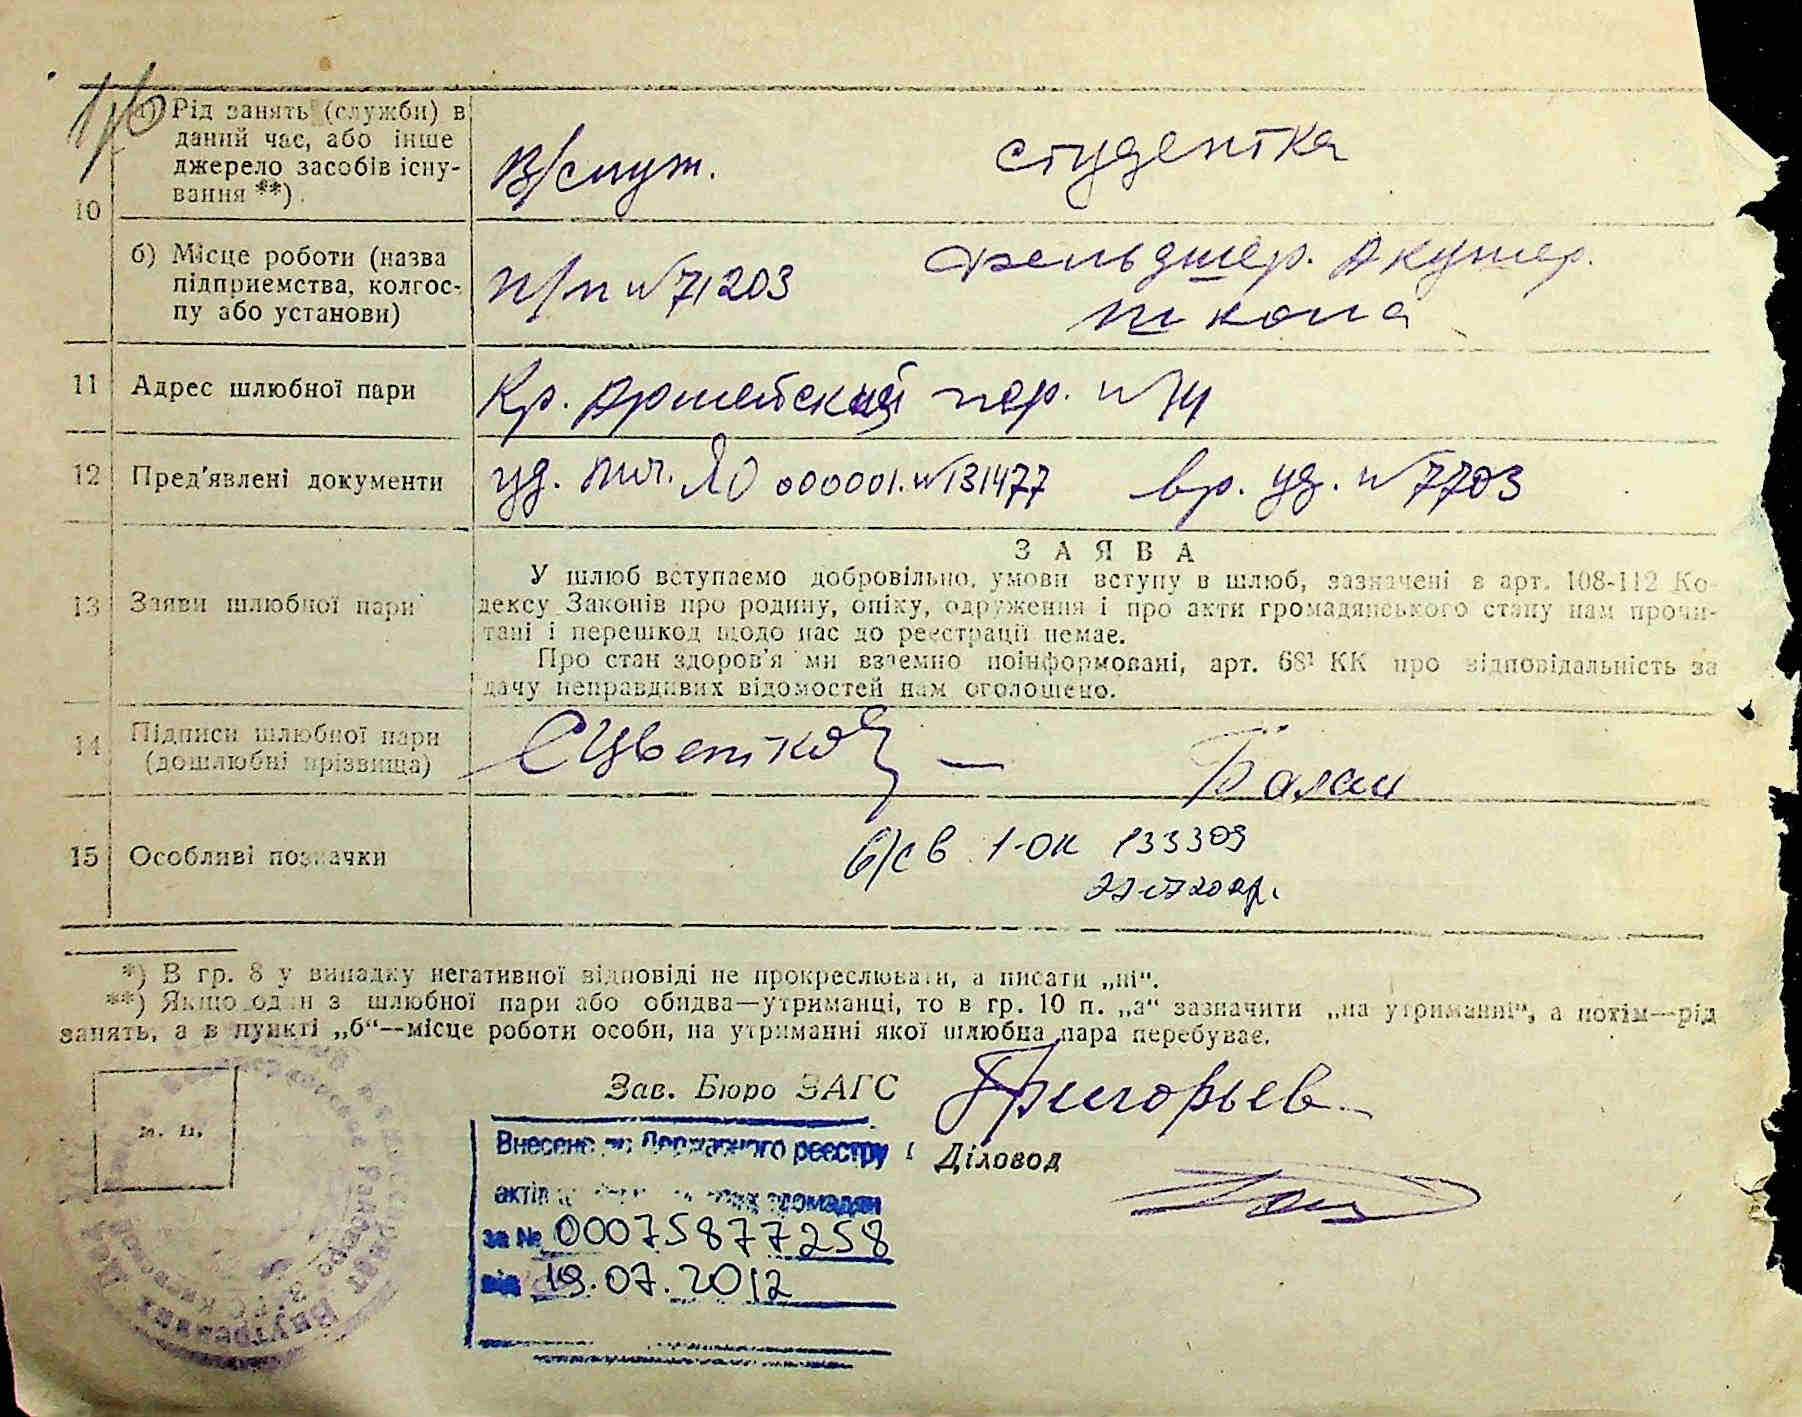 а) Рід занять (служби) в
даний час, або інше
джерело засобів існу-
вання **).
В/служ.
студентка
10
б) Місце роботи (назва
підприємства, колгос-
пу або установи)
п/п №71203
Фельдшер. Акушер.
школа
11 Адрес шлюбної пари
Кр. Армейский пер. №
12 Пред'явлені документи
уд. лич. ЯО 000001. №131477
вр. уд. №7703
13 Заяви шлюбної пари
ЗАЯВА
У шлюб вступаємо добровільно, умови вступу в шлюб, зазначені в арт. 108-112 Ко-
дексу Законів про родину, опіку, одруження і про акти громадянського стану нам прочи-
тані і перешкод щодо нас до реєстрації немає.
Про стан здоров'я ми взаємно поінформовані, арт. 68¹ КК про відповідальність за
дачу неправдивих відомостей нам оголошено.
14 Підписи шлюбної пари
(дошлюбні прізвища)
СЦветков
Балан
15 Особливі позначки
в/св 1-ОК 133309
*) В гр. 8 у випадку негативної відповіді не прокреслювати, а писати „ні“.
**) Якщо один з шлюбної пари або обидва—утриманці, то в гр. 10 п. „а“ зазначити „на утриманні“, а потім—рід
занять, а в пункті „б“—місце роботи особи, на утриманні якої шлюбна пара перебуває.
Зав. Бюро ЗАГС
Григорьев
м. п.
Внесено до Державного реєстру
актів громадян
за № 00075877258
від 19.07.2012
Діловод